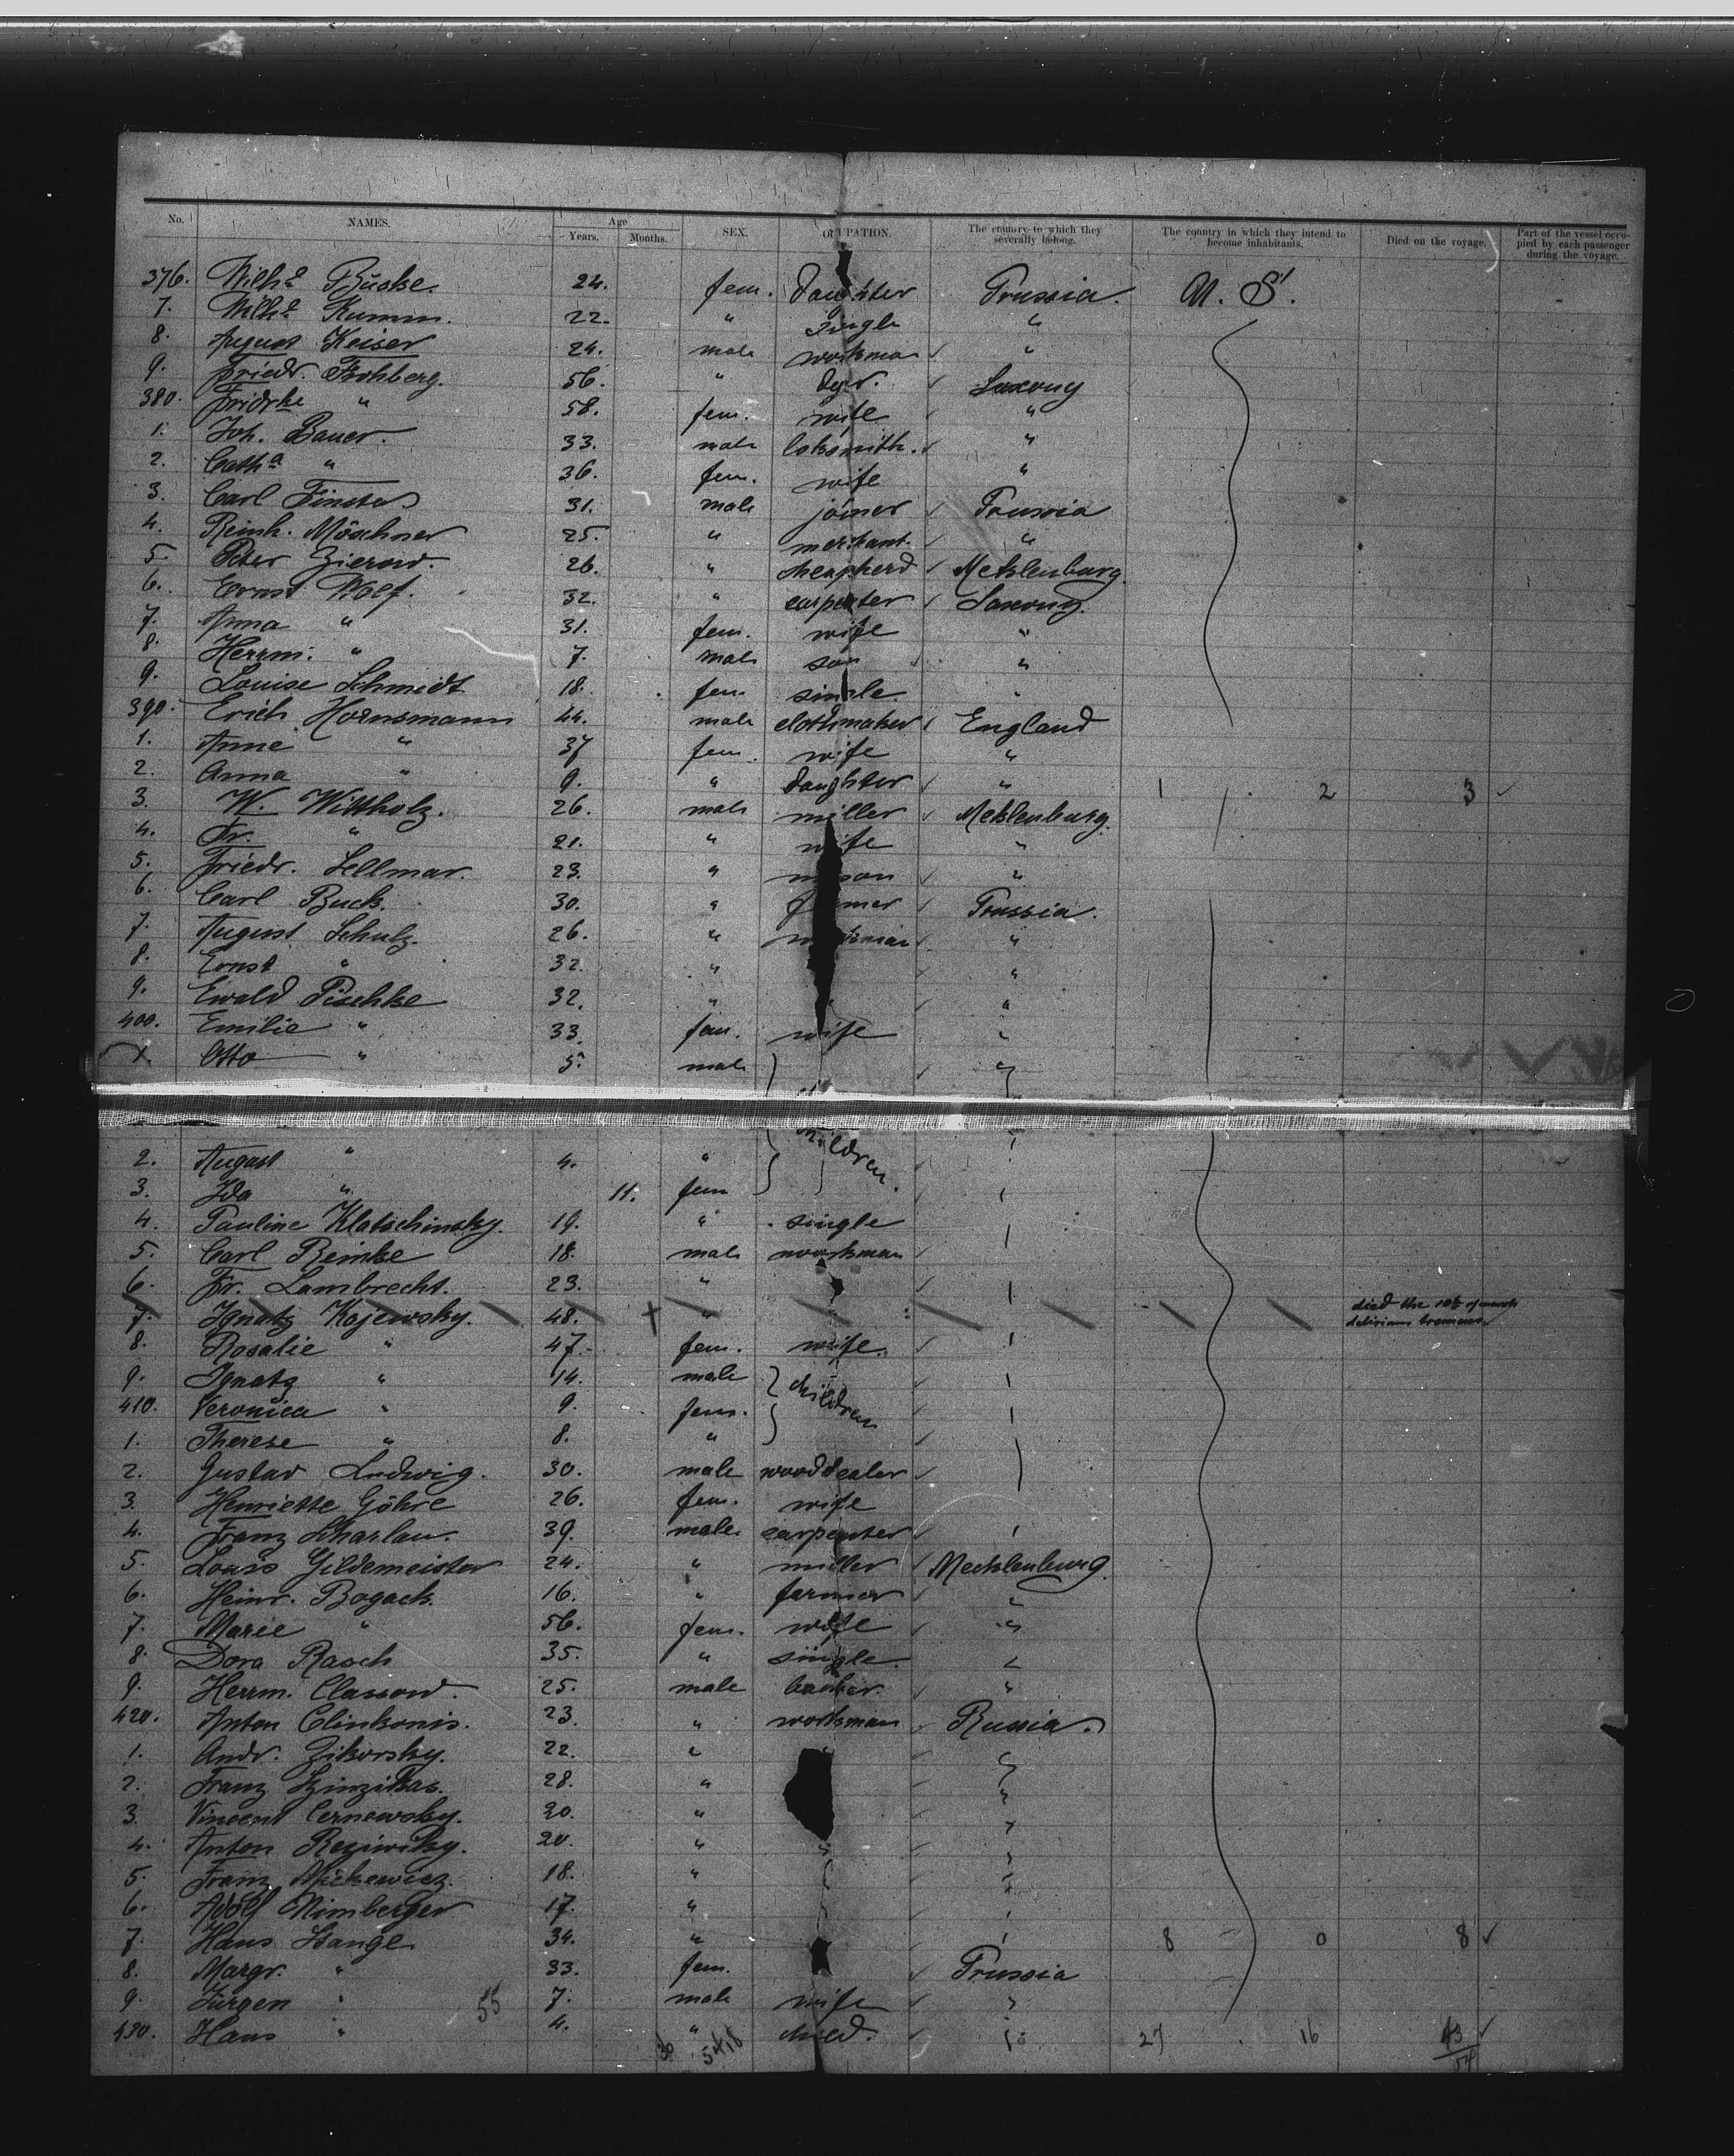 No. NAMES. Age Years. Months. SEX. OCCUPATION. The country to which they severally belong. The country in which they intend to become inhabitants. Died on the voyage. Part of the vessel occupied by each passenger during the voyage.
376. Wilhe 24. fem. daughter Prussia. U. S.
7. Wilhe Kumm. 22. " single "
8. August Keiser 24. male workman "
9. Friedr. Frohberg. 56. " Saxony
380. Fridrke " 58. fem. wife "
1. Joh. Bauer. 33. male loksmith. "
2. Catha " 36. fem. wife "
3. Carl Finster 31. male joiner Prussia
4. Reinh. Möschner 25. " merchant. "
5. Peter Zierow. 26. " sheapherd Meklenburg.
6. Ernst Wolf. 32. " carpenter Saxony.
7. Anna " 31. fem. wife "
8. Herrm. " 7. male son "
9. Louise Schmidt 18. fem single "
390. Erich Hornsmann 44. male clothmaker England
1. Anne " 37 fem. wife "
2. Anna " 9. " daughter " 1 2 3
3. W. Wittholz. 26. male miller Meklenburg.
4. Fr. " 21. " wife "
5. Friedr. Sellmar. 23. " mason "
6. Carl Buck. 30. " farmer Prussia.
7. August Schulz. 26. " workman "
8. Ernst " 32. " "
9. Ewald Pischke 32. " " "
400. Emilie " 33. fem. wife "
1. Otto " 5. male "
2. August " 4. " children.
3. Ida " 11. fem
4. Pauline Klatschinsky. 19. " single
5. Carl Reinke 18. male workman
6. Fr. Lambrecht. 23. "
7. Ignatz Kajewsky. 48. " died the 10th of march
delirium tremens.
8. Rosalie " 47. fem. wife.
9. Ignatz " 14. male children
410. Veronica " 9. fem.
1. Therese " 8. "
2. Gustav Ludwig. 30. male wooddealer
3. Henriette Göhre 26. fem. wife
4. Franz Scharlau. 39. male carpenter
5. Gildemeister 24. " miller Mecklenburg.
6. Heinr. Bogack. 16. " farmer "
7. Marie " 56. fem. wife "
8. Dora Rasch 35. " single "
9. Herrm. Classow. 25. male "
420. Anton Clinkonis. 23. " workman Russia.
1. Andr. Zikorsky. 22. " "
2. Franz 28. " "
3. Vincent Cernewsky. 20. "
4. Anton 20. " "
5. Franz Mickewicz. 18. "
6. Adolf Nimberger 17. "
7. Hans Lange 34. " 8 0 8
8. Margr. " 33. fem. Prussia
9. Jürgen " 55 7. male wife "
430. Hans " 4. " child. 27 16 43
54